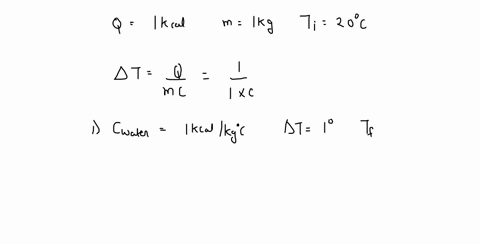 Q = 1 kcal   m = 1 kg   Ti = 20°C
ΔT = Q/mc = 1/1×c
1) Cwater = 1 kcal/kg°C   ΔT = 1°   Tf